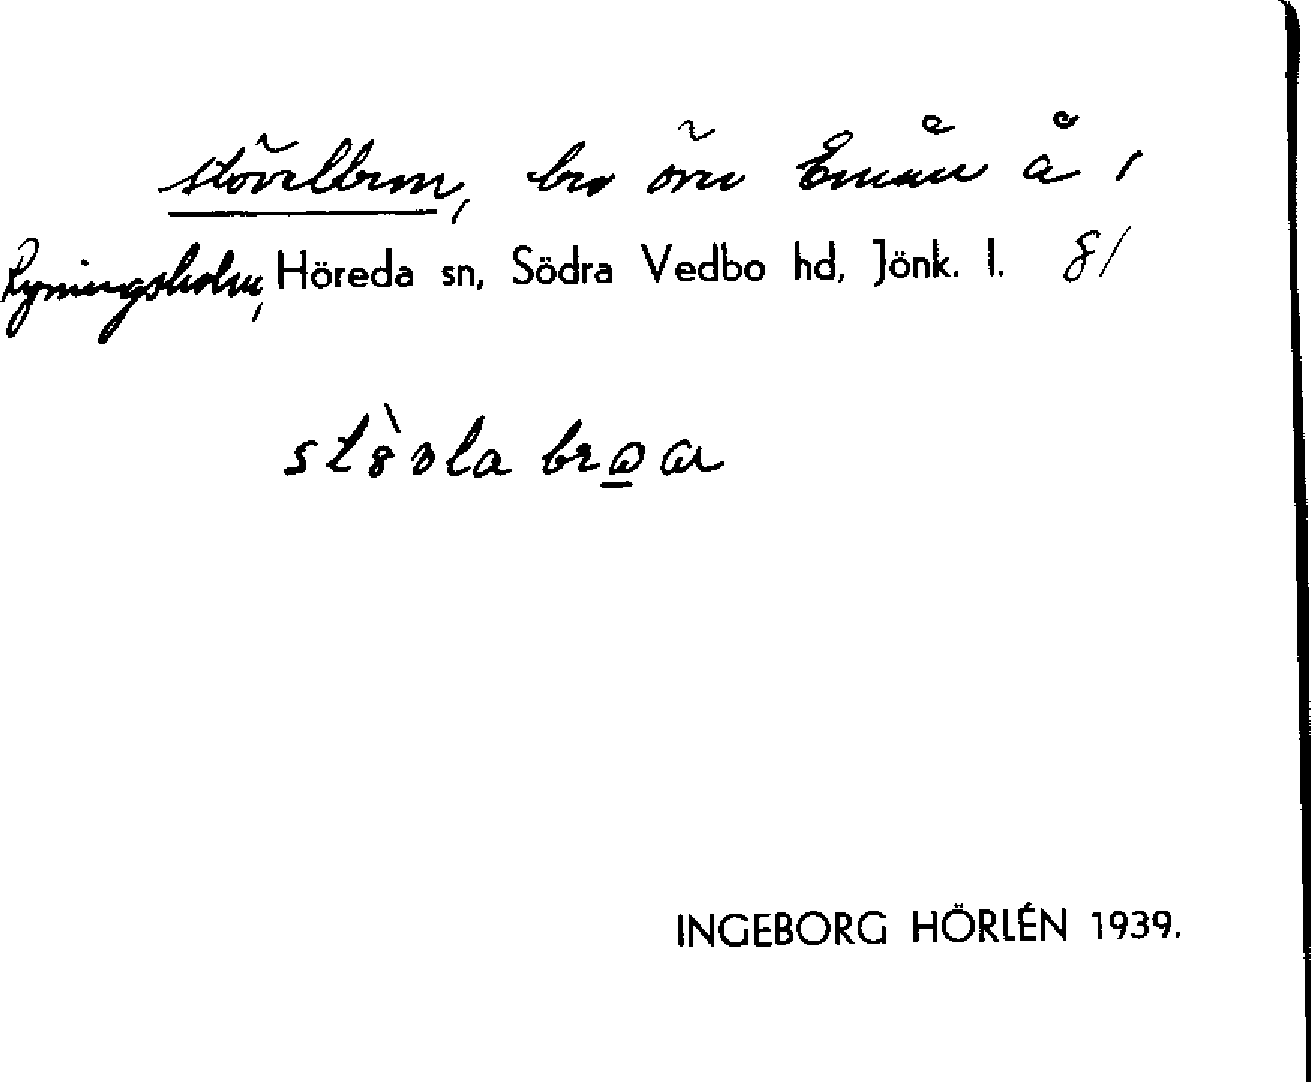 Stövelbron, bro över Emån å i
Ryningsholm, Höreda sn, Södra Vedbo hd, Jönk. l. 81
INGEBORG HÖRLÉN 1939.